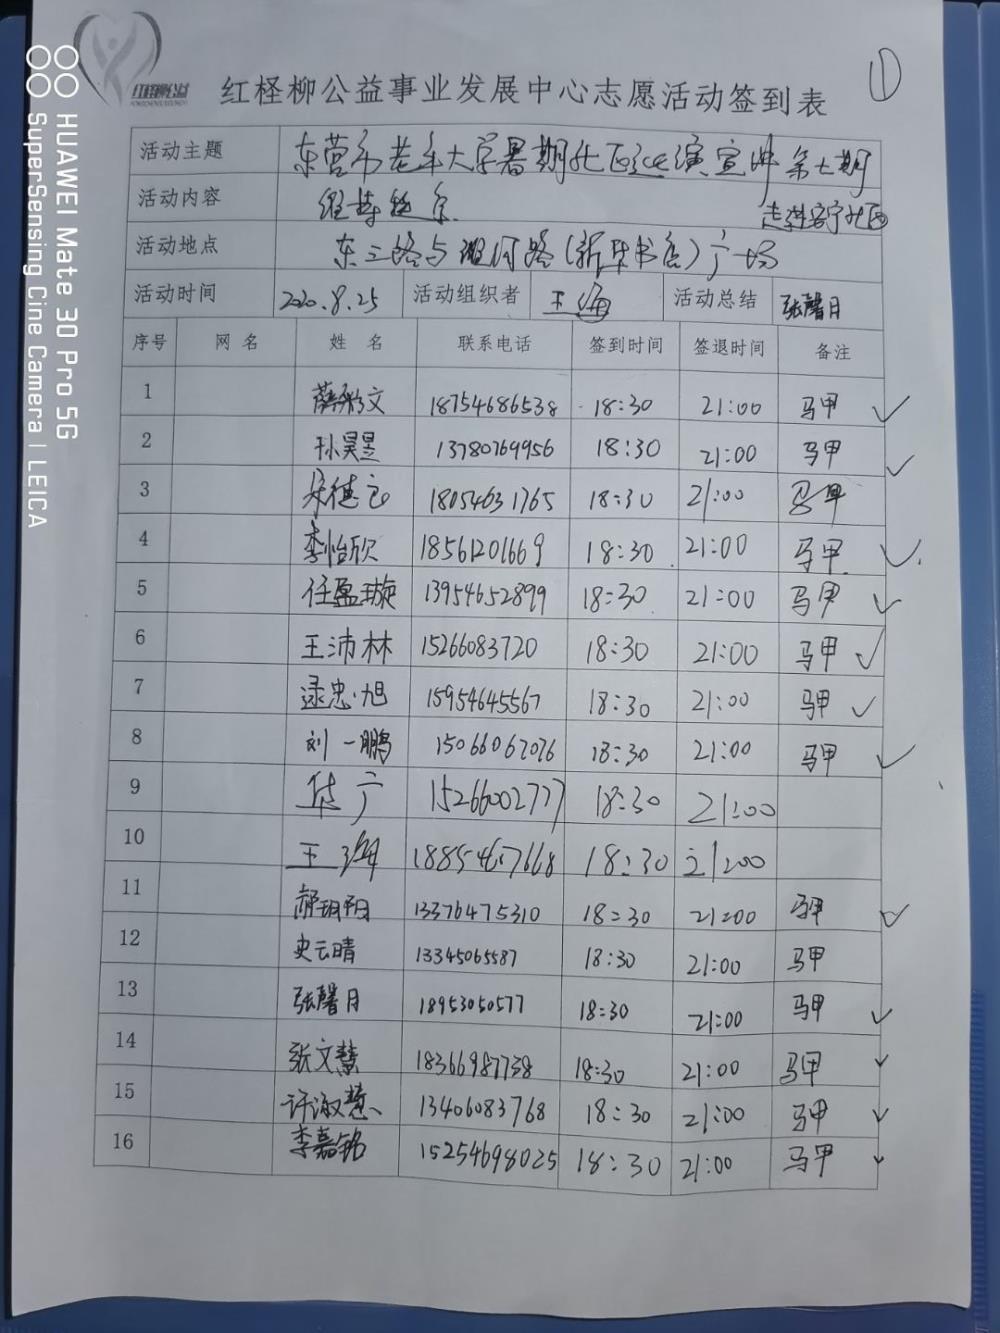 ①
红柽柳公益
红柽柳公益事业发展中心志愿活动签到表
活动主题 东营市老年大学暑期社区巡演宣讲第七期
活动内容 维持秩序 走进客宁社区
活动地点 东三路与 河路(新华书店)广场
活动时间 2020.8.25 活动组织者 王海 活动总结 张馨月
序号 网名 姓名 联系电话 签到时间 签退时间 备注
1 薛彩文 18754686538 18:30 21:00 马甲 ✓
2 孙昊昱 13780769956 18:30 21:00 马甲 ✓
3 18054631765 18:30 21:00 马甲
4 李怡欣 18561201669 18:30 21:00 马甲 ✓
5 任盈璇 13954652899 18:30 21:00 马甲 ✓
6 王沛林 15266083720 18:30 21:00 马甲 ✓
7 逯忠旭 15954645567 18:30 21:00 马甲 ✓
8 刘一鹏 15066067076 18:30 21:00 马甲 ✓
9 广 15266002777 18:30 21:00
10 王海 18854617668 18:30 21:00
11 13376475310 18:30 21:00 马甲 ✓
12 史云晴 13345065587 18:30 21:00 马甲
13 张馨月 18953050577 18:30 21:00 马甲 ✓
14 张文慧 18366987738 18:30 21:00 马甲 ✓
15 许淑慧 13406083768 18:30 21:00 马甲 ✓
16 李嘉铭 15254698025 18:30 21:00 马甲 ✓
HUAWEI Mate 30 Pro 5G
SuperSensing Cine Camera | LEICA